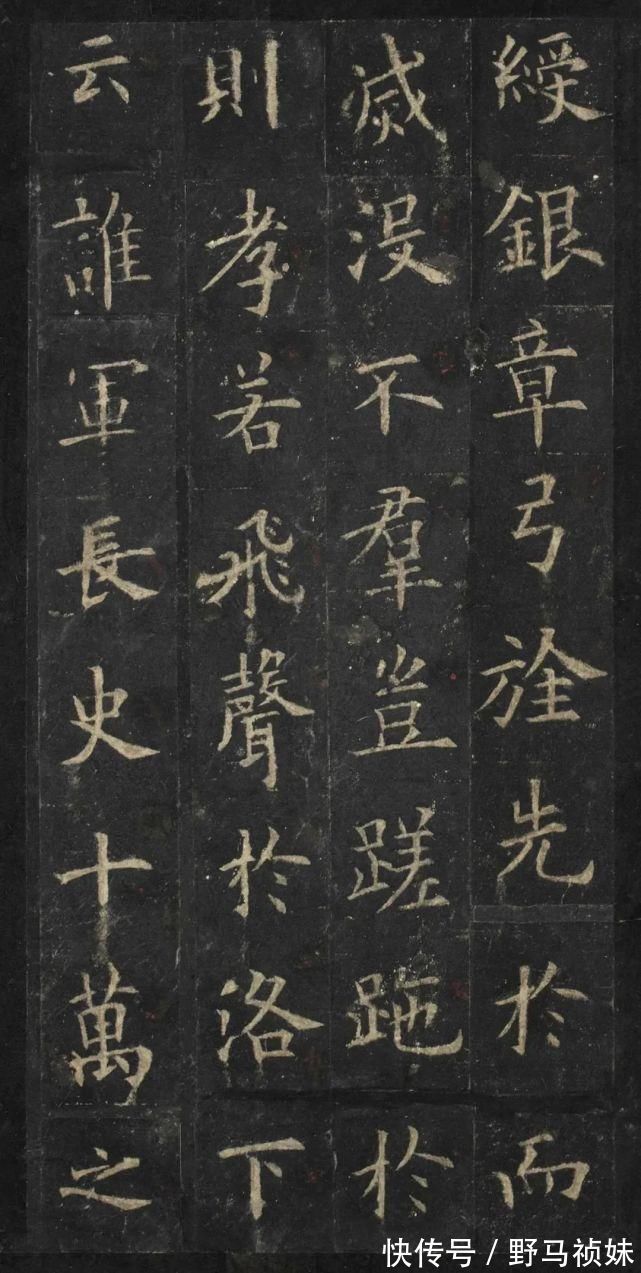 綬銀章弓旌先於而
滅没不羣豈蹉跎於
則孝若飛聲於洛下
云誰軍長史十萬之
快传号/野马祯妹